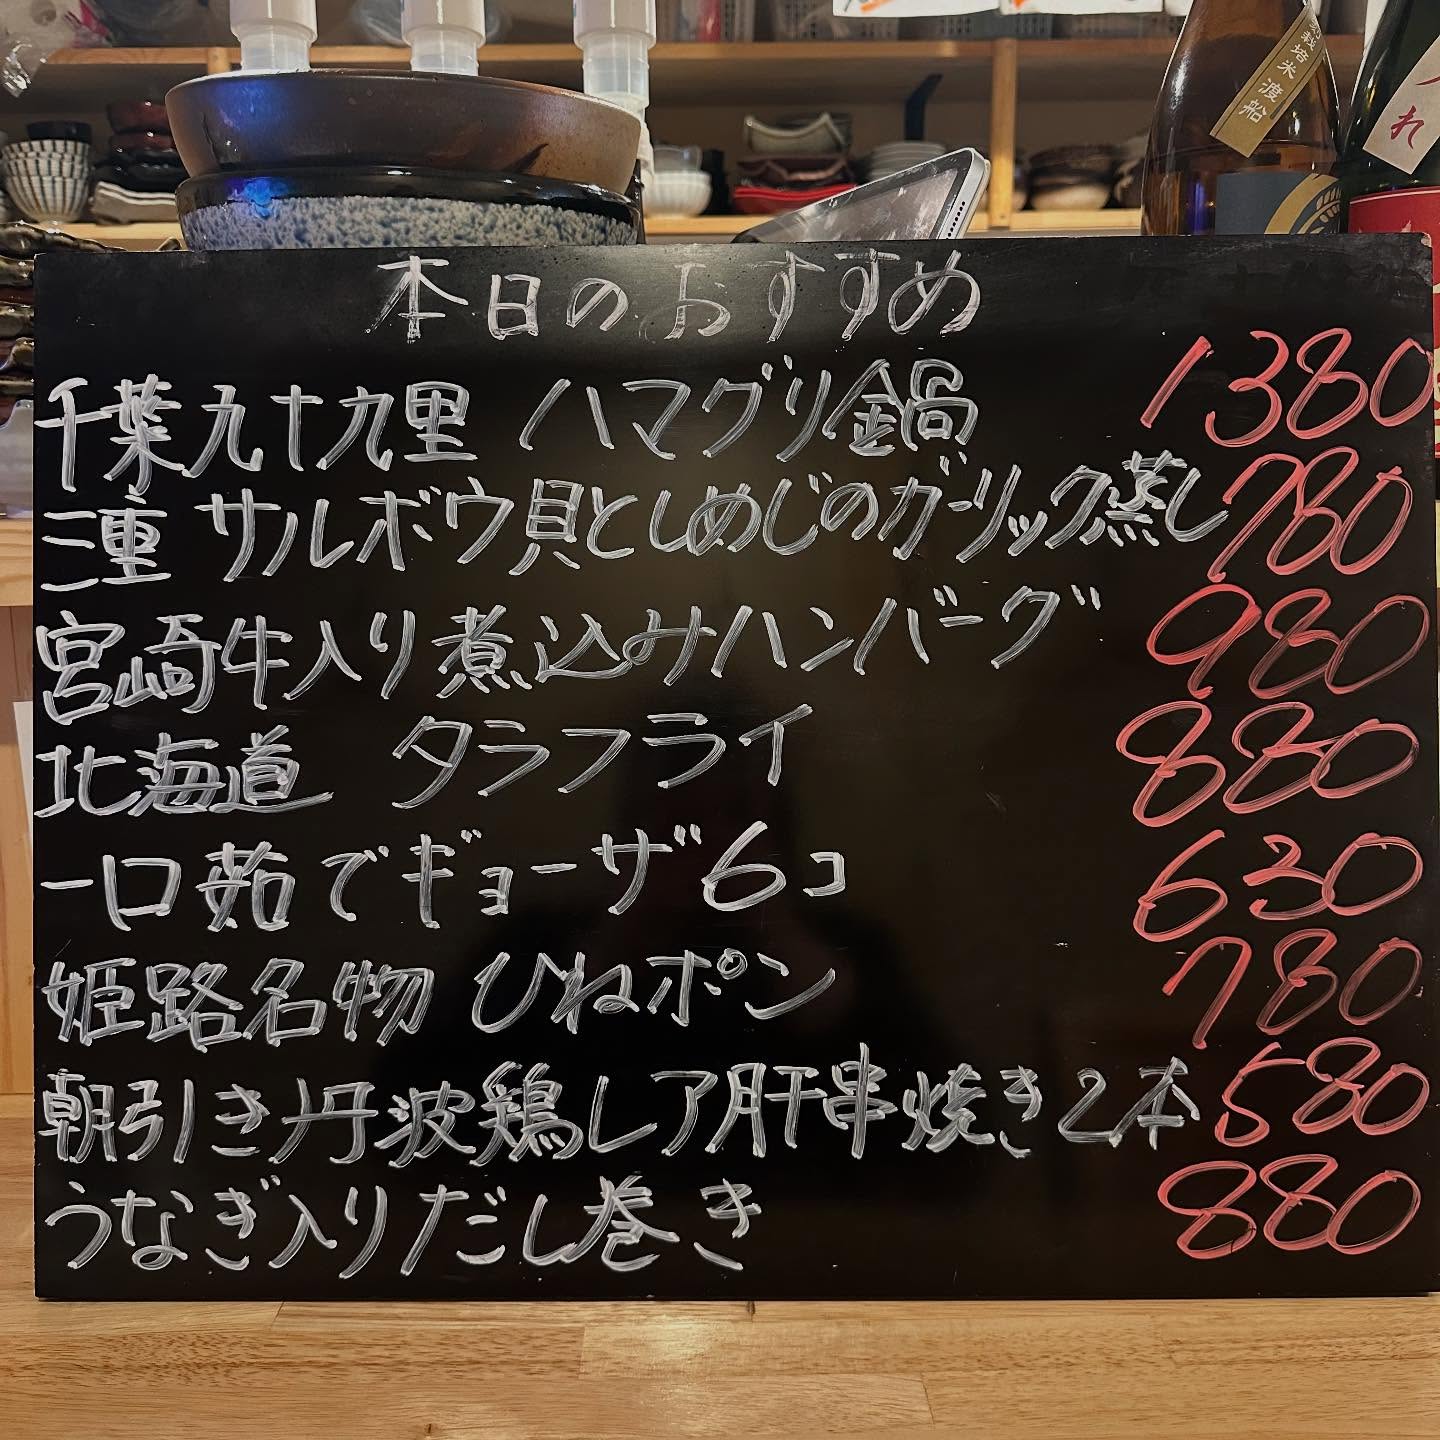 栽培米 渡船
れ
本日のおすすめ
千葉九十九里 ハマグリ鍋 1380
三重 サルボウ貝としめじのガーリック蒸し 780
宮崎牛入り煮込みハンバーグ 980
北海道 タラフライ 880
一口茹でギョーザ6コ 630
姫路名物 ひねポン 780
朝引き丹波鶏レア肝串焼き2本 580
うなぎ入りだし巻き 880